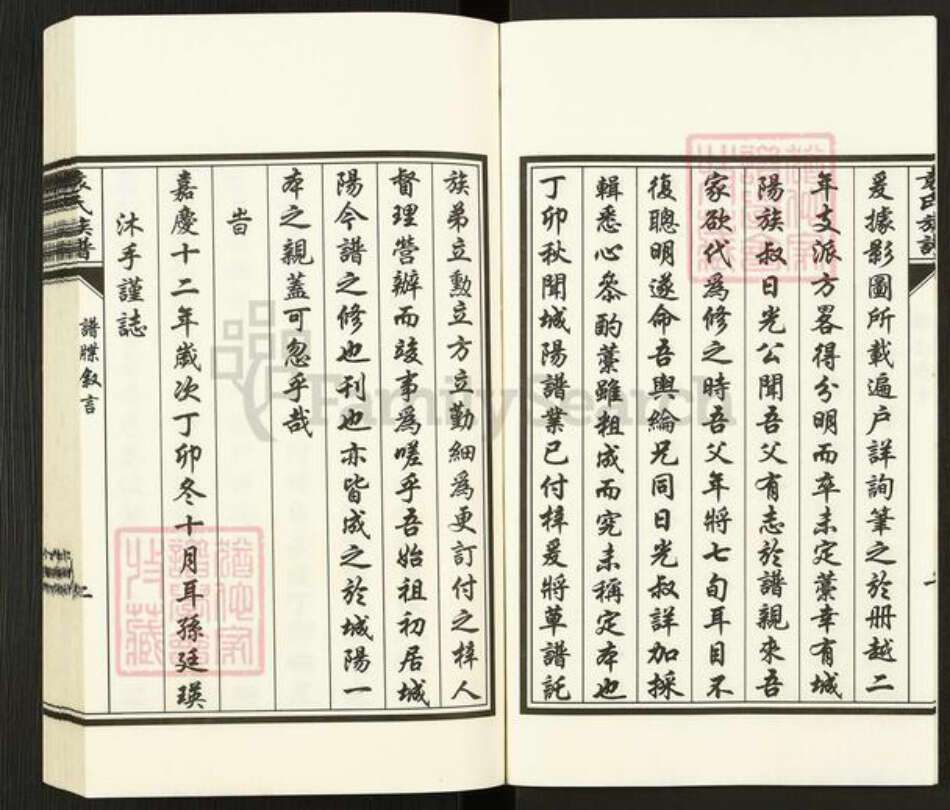 爰據影圖所載遍戶詳詢筆之於册越二
年支派方畧得分明而卒未定藁幸有城
陽族叔日光公聞吾父有志於譜親來吾
家欲代爲修之時吾父年將七旬耳目不
復聰明遂命吾與綸兄同日光叔詳加採
輯悉心叅酌藁雖粗成而究未稱定本也
丁卯秋聞城陽譜業已付梓爰將草譜託
族弟立勲立方立勤細爲更訂付之梓人
督理營辦而竣事爲嗟乎吾始祖初居城
陽今譜之修也刊也亦皆成之於城陽一
本之親蓋可忽乎哉
旹
嘉慶十二年嵗次丁卯冬十月耳孫廷瑛
沐手謹誌
氏族譜
譜牒叙言
FamilySearch